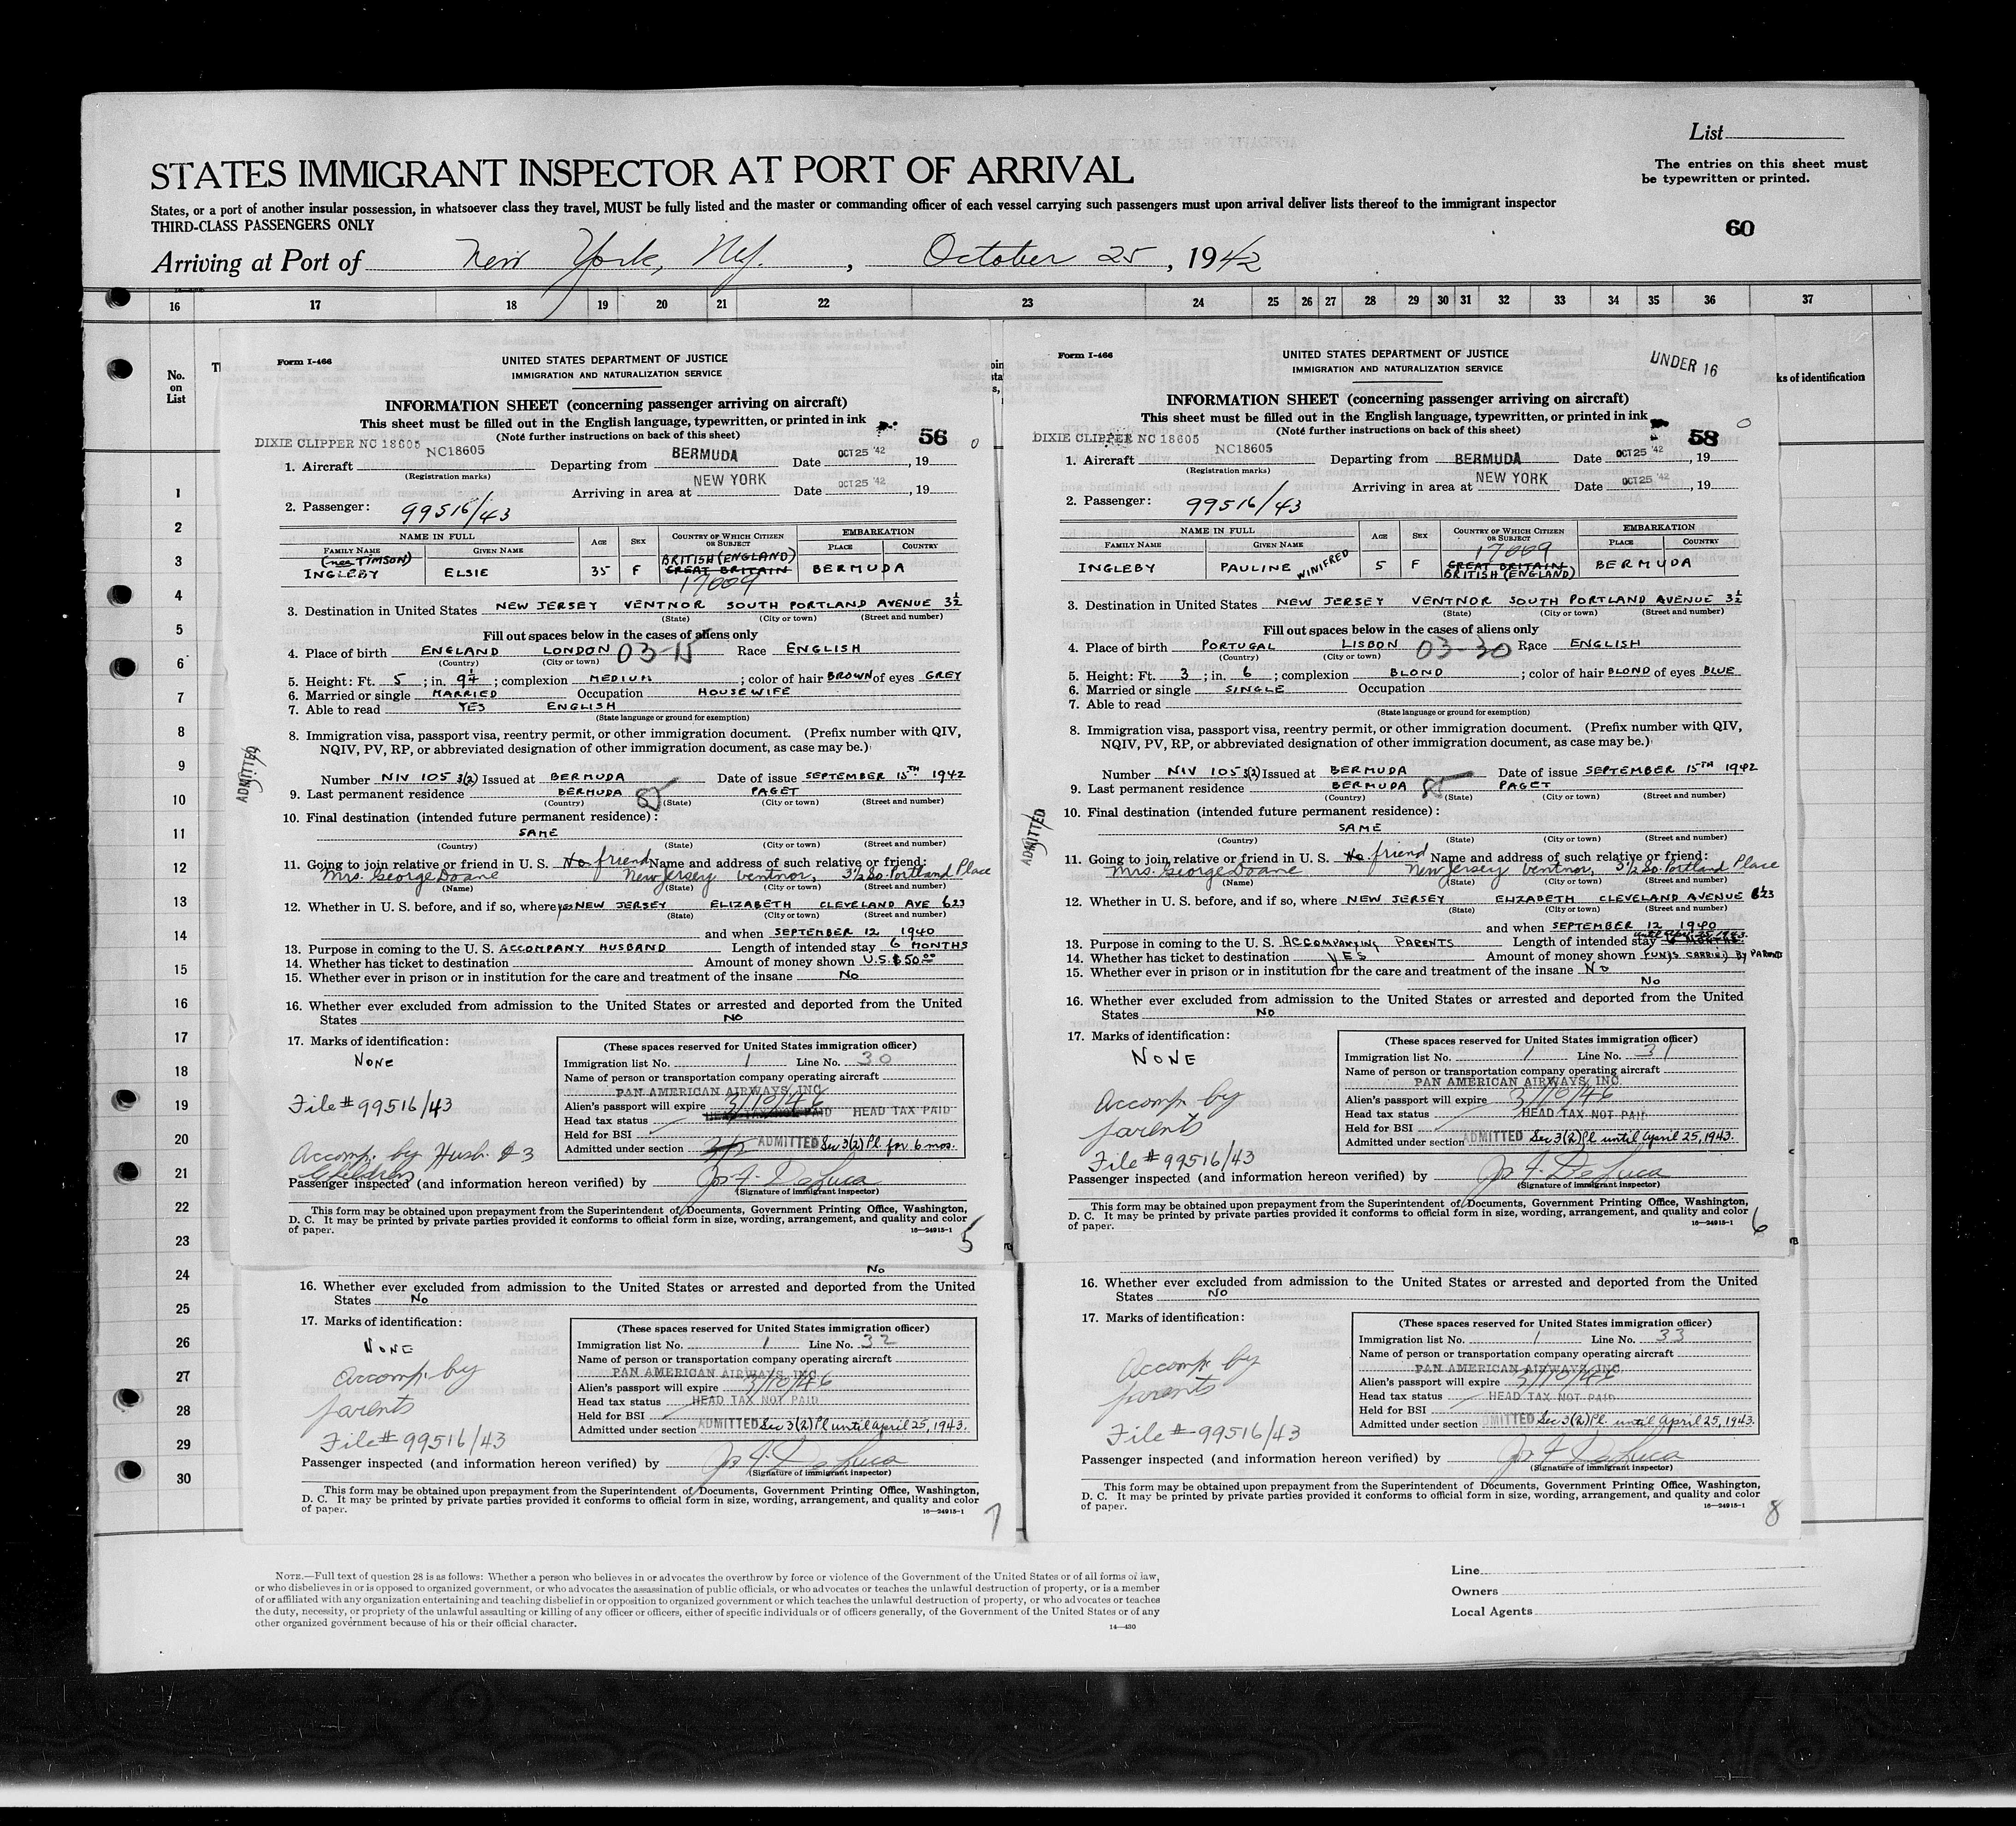 List
STATES IMMIGRANT INSPECTOR AT PORT OF ARRIVAL
The entries on this sheet must
be typewritten or printed.
States, or a port of another insular possession, in whatsoever class they travel, MUST be fully listed and the master or commanding officer of each vessel carrying such passengers must upon arrival deliver lists thereof to the immigrant inspector
THIRD-CLASS PASSENGERS ONLY
60
Arriving at Port of New York, NY. , October 25 , 1942
16 17 18 19 20 21 22 23 24 25 26 27 28 29 30 31 32 33 34 35 36 37
No.
on
List
ks of identification
1
2
3
4
5
6
7
8
9
10
11
12
13
14
15
16
17
18
19
20
21
22
23
24
25
26
27
28
29
30
Form I-466
UNITED STATES DEPARTMENT OF JUSTICE
IMMIGRATION AND NATURALIZATION SERVICE
INFORMATION SHEET (concerning passenger arriving on aircraft)
This sheet must be filled out in the English language, typewritten, or printed in ink
(Note further instructions on back of this sheet)
56
0
DIXIE CLIPPER NC 18605
1. Aircraft NC18605 Departing from BERMUDA Date OCT 25 '42 , 19
(Registration marks)
Arriving in area at NEW YORK Date OCT 25 '42 , 19
2. Passenger: 99516/43
NAME IN FULL AGE SEX COUNTRY OF WHICH CITIZEN OR SUBJECT EMBARKATION
FAMILY NAME GIVEN NAME PLACE COUNTRY
(nee TIMSON) BRITISH (ENGLAND)
INGLEBY ELSIE 35 F GREAT BRITAIN BERMUDA
17009
3. Destination in United States NEW JERSEY VENTNOR SOUTH PORTLAND AVENUE 3½
(State) (City or town) (Street and number)
Fill out spaces below in the cases of aliens only
4. Place of birth ENGLAND LONDON 03-15 Race ENGLISH
(Country) (City or town)
5. Height: Ft. 5 ; in. 9¼ ; complexion MEDIUM ; color of hair BROWN of eyes GREY
6. Married or single MARRIED Occupation HOUSEWIFE
7. Able to read YES ENGLISH
(State language or ground for exemption)
8. Immigration visa, passport visa, reentry permit, or other immigration document. (Prefix number with QIV,
NQIV, PV, RP, or abbreviated designation of other immigration document, as case may be.)
ADMITTED
Number NIV 105 3(2) Issued at BERMUDA Date of issue SEPTEMBER 15TH 1942
9. Last permanent residence BERMUDA 85 PAGET
(Country) (State) (City or town) (Street and number)
10. Final destination (intended future permanent residence):
SAME
(Country) (State) (City or town) (Street and number)
11. Going to join relative or friend in U. S. No friend Name and address of such relative or friend:
Mrs. George Doane New Jersey Ventnor, 3½ So. Portland Place
(Name) (State) (City or town) (Street and number)
12. Whether in U. S. before, and if so, where yes NEW JERSEY ELIZABETH CLEVELAND AVE 623
(State) (City or town) (Street and number)
and when SEPTEMBER 12 1940
13. Purpose in coming to the U. S. ACCOMPANY HUSBAND Length of intended stay 6 MONTHS
14. Whether has ticket to destination Amount of money shown U.S.$50.00
15. Whether ever in prison or in institution for the care and treatment of the insane NO
16. Whether ever excluded from admission to the United States or arrested and deported from the United
States NO
17. Marks of identification:
NONE
File # 99516/43
Accomp. by Husb. & 3
Children
(These spaces reserved for United States immigration officer)
Immigration list No. 1 Line No. 30
Name of person or transportation company operating aircraft
PAN AMERICAN AIRWAYS, INC.
Alien's passport will expire 3/10/46
Head tax status HEAD TAX NOT PAID HEAD TAX PAID
Held for BSI
Admitted under section 3/2 ADMITTED Sec 3(2) Pl. for 6 mos.
Passenger inspected (and information hereon verified) by Jos. F. DeLuca
(Signature of immigrant inspector)
This form may be obtained upon prepayment from the Superintendent of Documents, Government Printing Office, Washington,
D. C. It may be printed by private parties provided it conforms to official form in size, wording, arrangement, and quality and color
of paper. 16—24915-1
5
Form I-466
UNITED STATES DEPARTMENT OF JUSTICE
IMMIGRATION AND NATURALIZATION SERVICE
UNDER 16
INFORMATION SHEET (concerning passenger arriving on aircraft)
This sheet must be filled out in the English language, typewritten, or printed in ink
(Note further instructions on back of this sheet)
58
0
DIXIE CLIPPER NC 18605
1. Aircraft NC18605 Departing from BERMUDA Date OCT 25 '42 , 19
(Registration marks)
Arriving in area at NEW YORK Date OCT 25 '42 , 19
2. Passenger: 99516/43
NAME IN FULL AGE SEX COUNTRY OF WHICH CITIZEN OR SUBJECT EMBARKATION
FAMILY NAME GIVEN NAME PLACE COUNTRY
17009
INGLEBY PAULINE WINIFRED 5 F GREAT BRITAIN BERMUDA
BRITISH (ENGLAND)
3. Destination in United States NEW JERSEY VENTNOR SOUTH PORTLAND AVENUE 3½
(State) (City or town) (Street and number)
Fill out spaces below in the cases of aliens only
4. Place of birth PORTUGAL LISBON 03-30 Race ENGLISH
(Country) (City or town)
5. Height: Ft. 3 ; in. 6 ; complexion BLOND ; color of hair BLOND of eyes BLUE
6. Married or single SINGLE Occupation
7. Able to read
(State language or ground for exemption)
8. Immigration visa, passport visa, reentry permit, or other immigration document. (Prefix number with QIV,
NQIV, PV, RP, or abbreviated designation of other immigration document, as case may be.)
Number NIV 105 3(2) Issued at BERMUDA Date of issue SEPTEMBER 15TH 1942
9. Last permanent residence BERMUDA 85 PAGET
(Country) (State) (City or town) (Street and number)
ADMITTED
10. Final destination (intended future permanent residence):
SAME
(Country) (State) (City or town) (Street and number)
11. Going to join relative or friend in U. S. No friend Name and address of such relative or friend:
Mrs. George Doane New Jersey Ventnor, 3½ So. Portland Place
(Name) (State) (City or town) (Street and number)
12. Whether in U. S. before, and if so, where NEW JERSEY ELIZABETH CLEVELAND AVENUE 623
(State) (City or town) (Street and number)
and when SEPTEMBER 12 1940
13. Purpose in coming to the U. S. ACCOMPANYING PARENTS Length of intended stay 6 MONTHS
14. Whether has ticket to destination YES Amount of money shown FUNDS CARRIED BY PARENTS
15. Whether ever in prison or in institution for the care and treatment of the insane NO
No
16. Whether ever excluded from admission to the United States or arrested and deported from the United
States NO
17. Marks of identification:
NONE
Accomp. by
parents
File # 99516/43
(These spaces reserved for United States immigration officer)
Immigration list No. 1 Line No. 31
Name of person or transportation company operating aircraft
PAN AMERICAN AIRWAYS, INC.
Alien's passport will expire 3/10/46
Head tax status HEAD TAX NOT PAID
Held for BSI
Admitted under section ADMITTED Sec 3(2) Pl. until April 25, 1943.
Passenger inspected (and information hereon verified) by Jos. F. DeLuca
(Signature of immigrant inspector)
This form may be obtained upon prepayment from the Superintendent of Documents, Government Printing Office, Washington,
D. C. It may be printed by private parties provided it conforms to official form in size, wording, arrangement, and quality and color
of paper. 16—24915-1
6
No
16. Whether ever excluded from admission to the United States or arrested and deported from the United
States No
17. Marks of identification:
NONE
Accomp. by
parents
File # 99516/43
(These spaces reserved for United States immigration officer)
Immigration list No. 1 Line No. 32
Name of person or transportation company operating aircraft
PAN AMERICAN AIRWAYS, INC.
Alien's passport will expire 3/10/46
Head tax status HEAD TAX NOT PAID
Held for BSI
Admitted under section ADMITTED Sec 3(2) Pl until April 25, 1943.
Passenger inspected (and information hereon verified) by Jos. F. DeLuca
(Signature of immigrant inspector)
This form may be obtained upon prepayment from the Superintendent of Documents, Government Printing Office, Washington,
D. C. It may be printed by private parties provided it conforms to official form in size, wording, arrangement, and quality and color
of paper. 16—24915-1
7
16. Whether ever excluded from admission to the United States or arrested and deported from the United
States NO
17. Marks of identification:
Accomp. by
parents
File # 99516/43
(These spaces reserved for United States immigration officer)
Immigration list No. 1 Line No. 33
Name of person or transportation company operating aircraft
PAN AMERICAN AIRWAYS, INC.
Alien's passport will expire 3/10/46
Head tax status HEAD TAX NOT PAID
Held for BSI
Admitted under section ADMITTED Sec 3(2) Pl. until April 25, 1943.
Passenger inspected (and information hereon verified) by Jos. F. DeLuca
(Signature of immigrant inspector)
This form may be obtained upon prepayment from the Superintendent of Documents, Government Printing Office, Washington,
D. C. It may be printed by private parties provided it conforms to official form in size, wording, arrangement, and quality and color
of paper. 16—24915-1
8
NOTE.—Full text of question 28 is as follows: Whether a person who believes in or advocates the overthrow by force or violence of the Government of the United States or of all forms of law,
or who disbelieves in or is opposed to organized government, or who advocates the assassination of public officials, or who advocates or teaches the unlawful destruction of property, or is a member
of or affiliated with any organization entertaining and teaching disbelief in or opposition to organized government or which teaches the unlawful destruction of property, or who advocates or teaches
the duty, necessity, or propriety of the unlawful assaulting or killing of any officer or officers, either of specific individuals or of officers generally, of the Government of the United States or of any
other organized government because of his or their official character. 14—430
Line
Owners
Local Agents